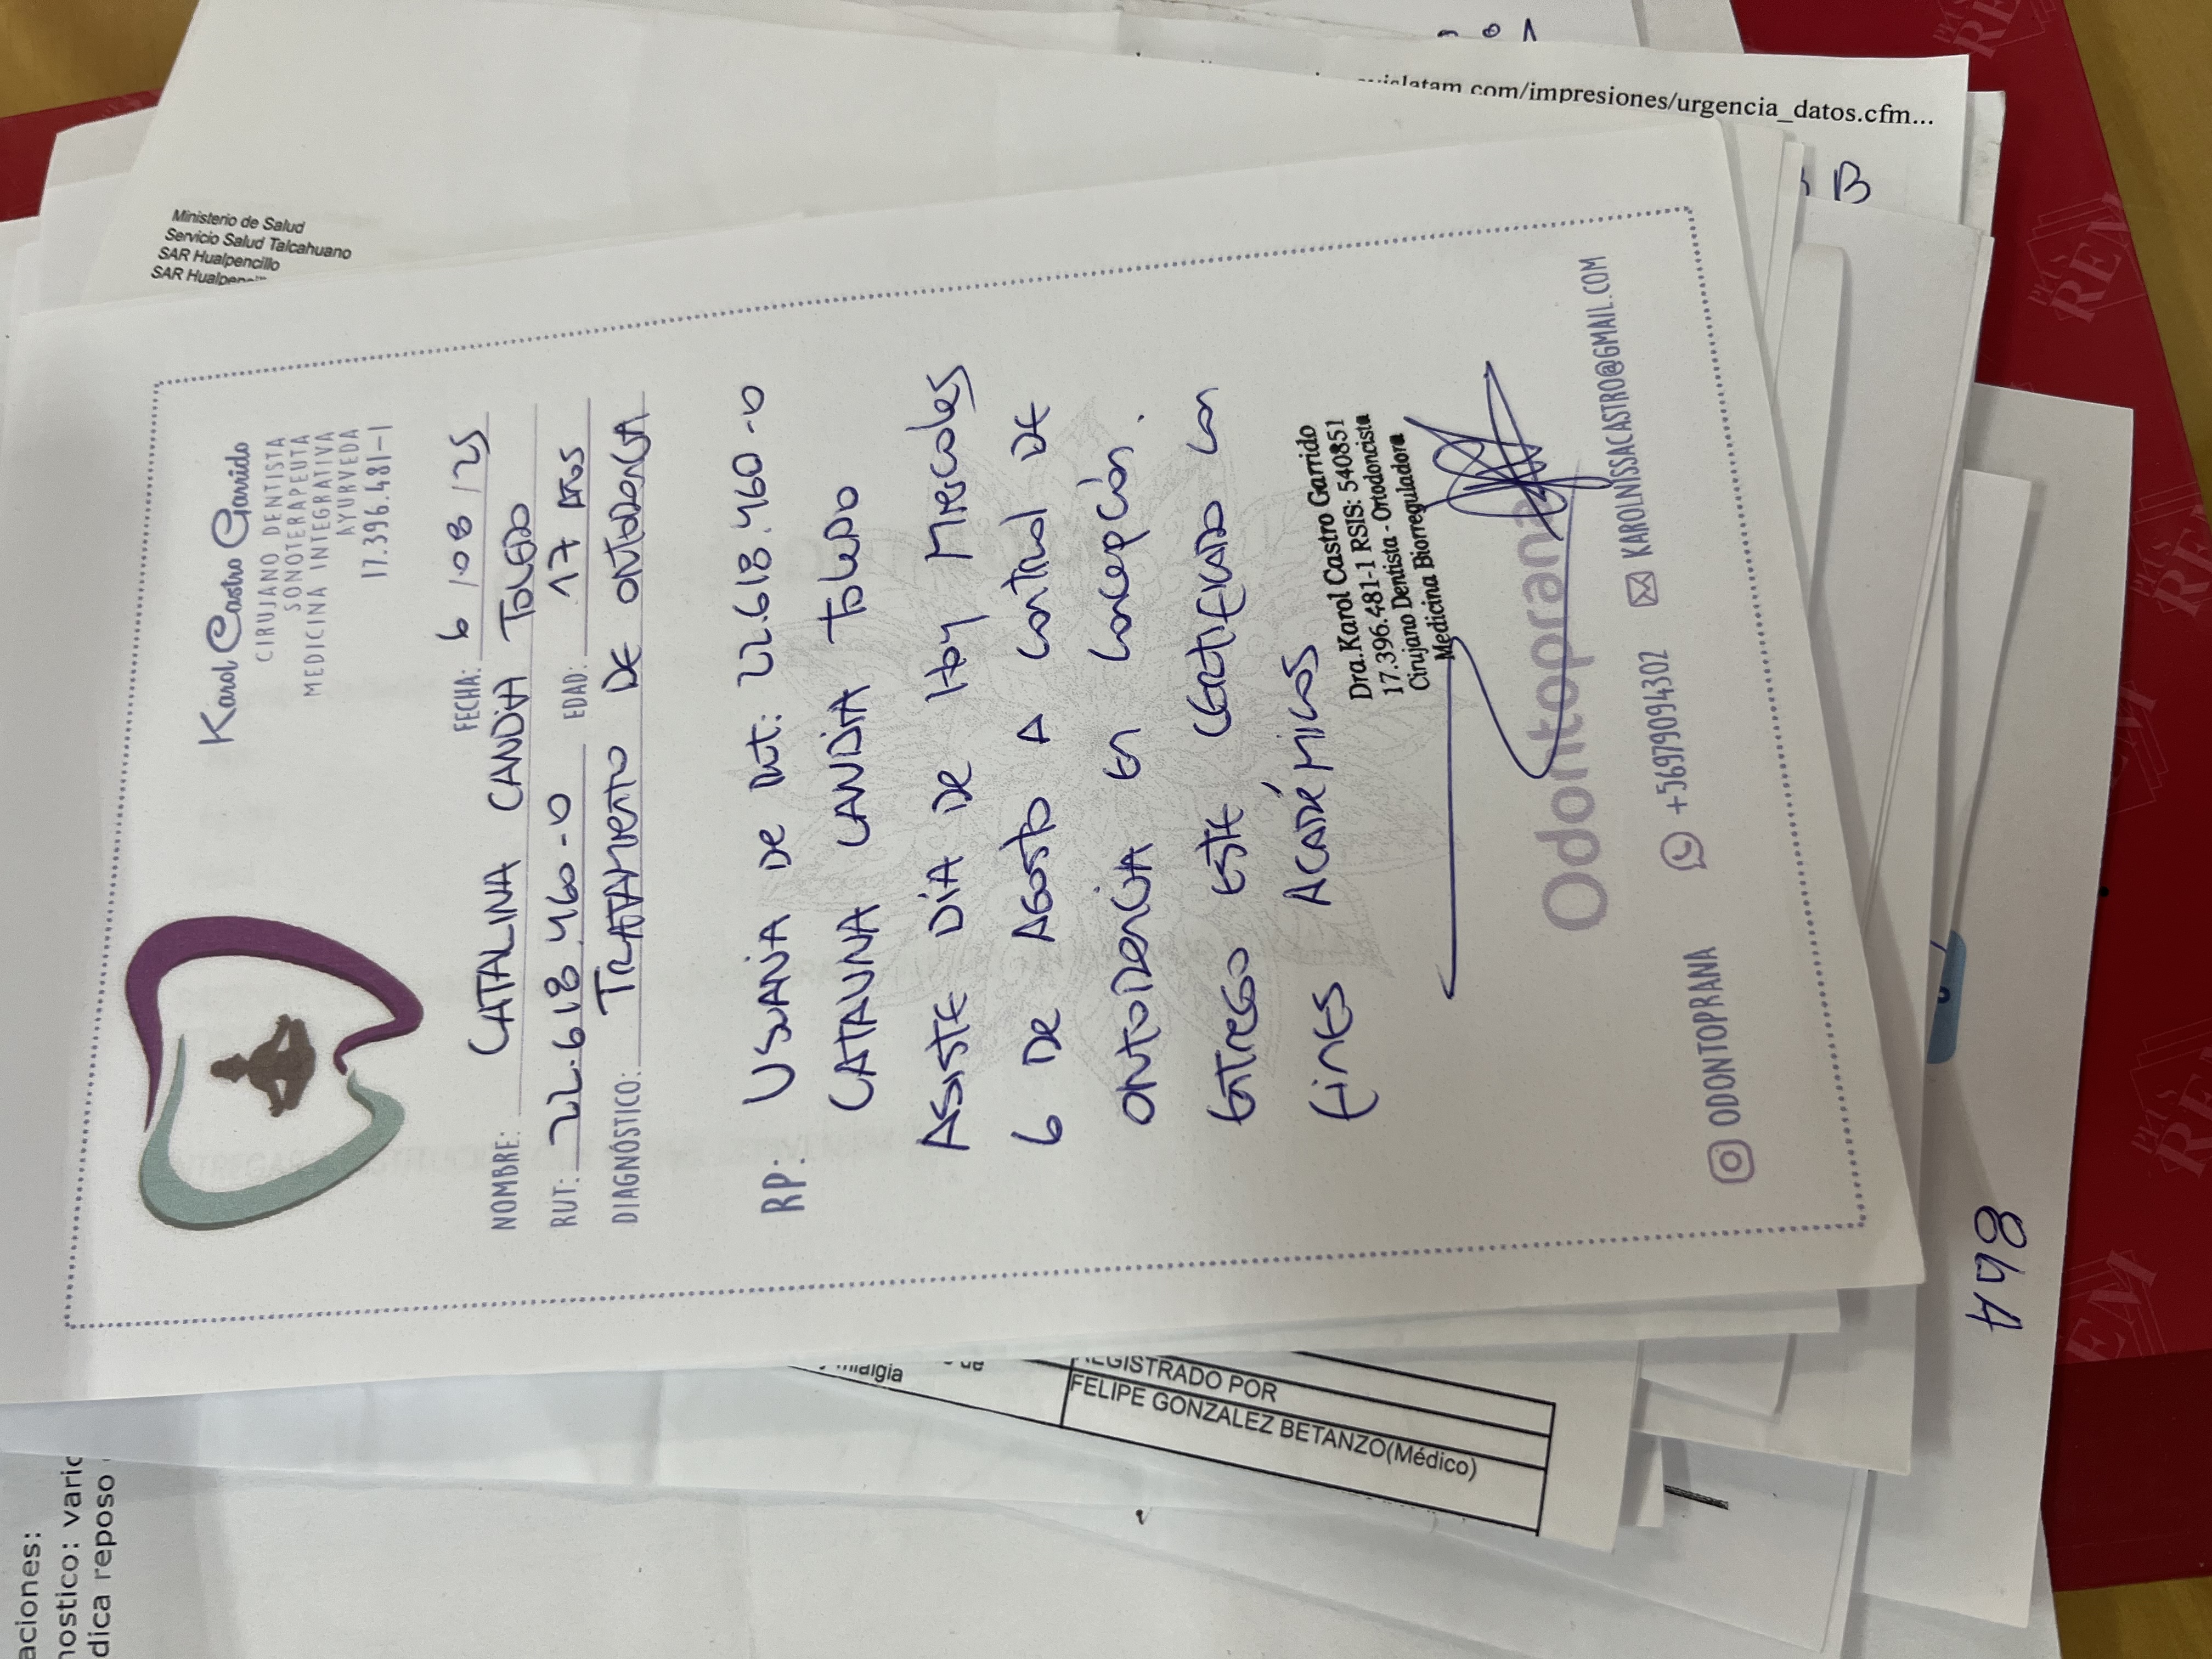 Karol Castro Garrido
CIRUJANO DENTISTA
SONOTERAPEUTA
MEDICINA INTEGRATIVA
AYURVEDA
17.396.481-1
FECHA: 6 / 08 / 25
NOMBRE: CATALINA CANDIA TOLEDO
RUT: 22.618.460-0 EDAD: 17 AÑOS
DIAGNÓSTICO: TRATAMIENTO DE ORTODONCIA
RP: USUARIA DE RUT: 22.618.460-0
CATALINA CANDIA TOLEDO
ASISTE DIA DE HOY MIERCOLES
6 DE AGOSTO A CONTROL DE
ORTODONCIA EN CONCEPCIÓN.
ENTREGO ESTE CERTIFICADO CON
FINES ACADÉMICOS
Dra.Karol Castro Garrido
17.396.481-1 RSIS: 540851
Cirujano Dentista - Ortodoncista
Medicina Biorreguladora
Odontoprana
ODONTOPRANA +56979094302 KAROLNISSACASTRO@GMAIL.COM
Ministerio de Salud
Servicio Salud Talcahuano
SAR Hualpencillo
latam.com/impresiones/urgencia_datos.cfm...
B
REGISTRADO POR
FELIPE GONZALEZ BETANZO(Médico)
mialgia
de
aciones:
nostico: varic
dica reposo
REM